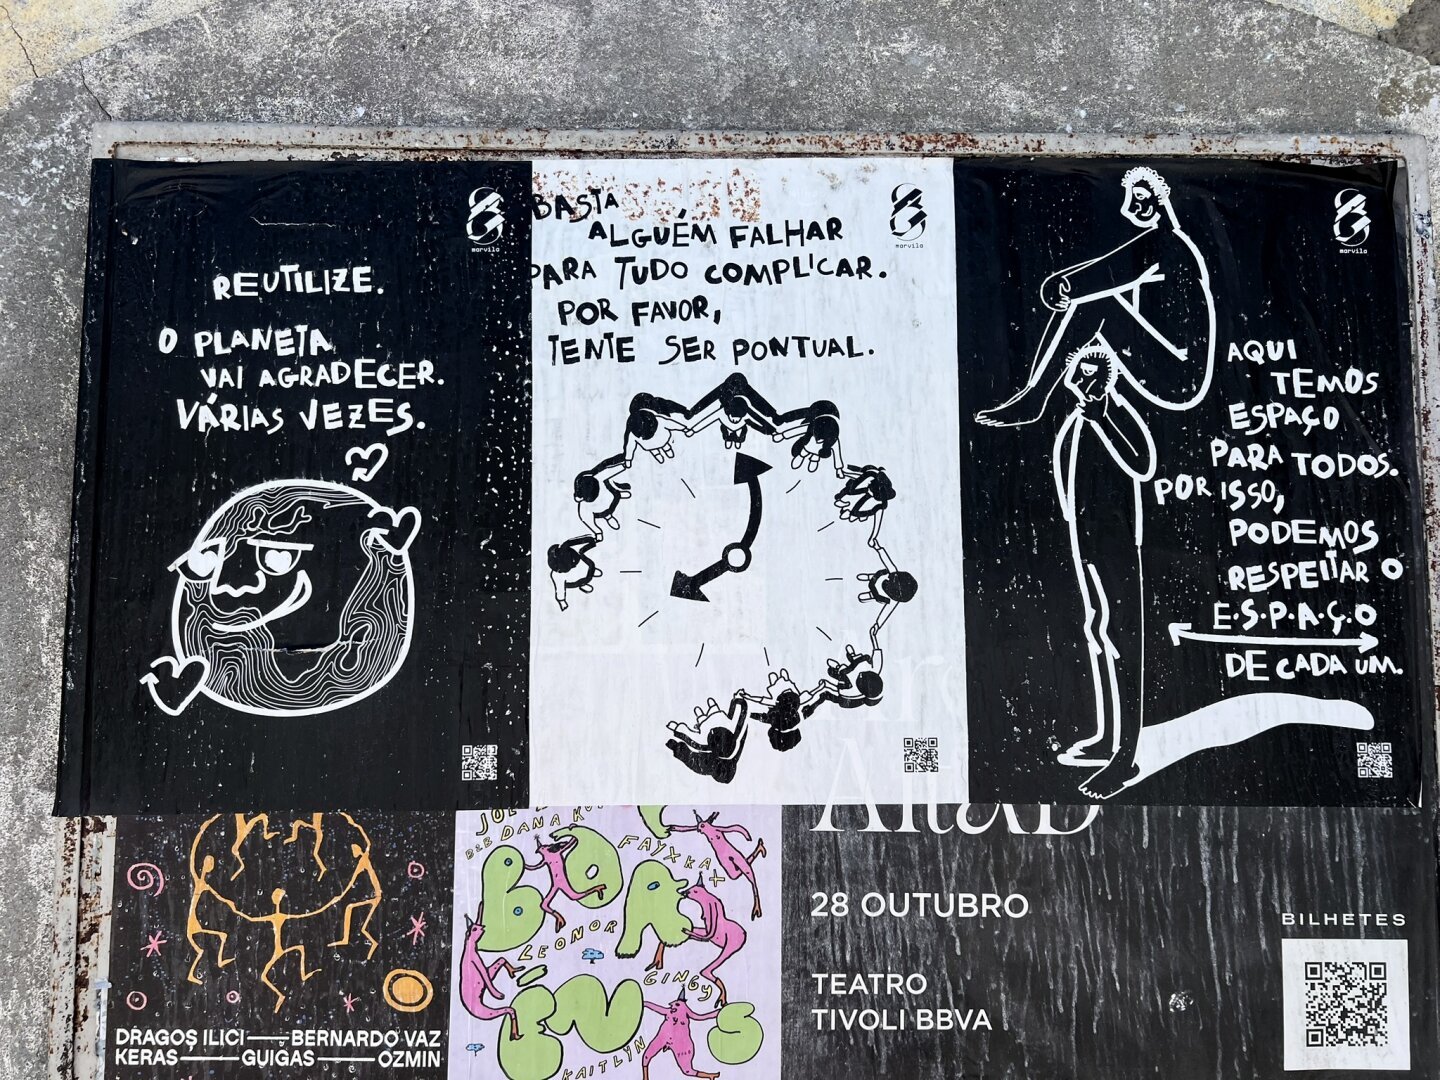 marvila
REUTILIZE.
O PLANETA
VAI AGRADECER.
VÁRIAS VEZES.
marvila
BASTA
ALGUÉM FALHAR
PARA TUDO COMPLICAR.
POR FAVOR,
TENTE SER PONTUAL.
marvila
AQUI
TEMOS
ESPAÇO
PARA TODOS.
POR ISSO,
PODEMOS
RESPEITAR O
E·S·P·A·Ç·O
DE CADA UM.
DRAGOȘ ILICI — BERNARDO VAZ
KERAS — GUIGAS — OZMIN
B2B DANA
FAYXKAX
BOR
LEONOR
GINGY
ENS
KAITLYN
28 OUTUBRO
TEATRO
TIVOLI BBVA
BILHETES